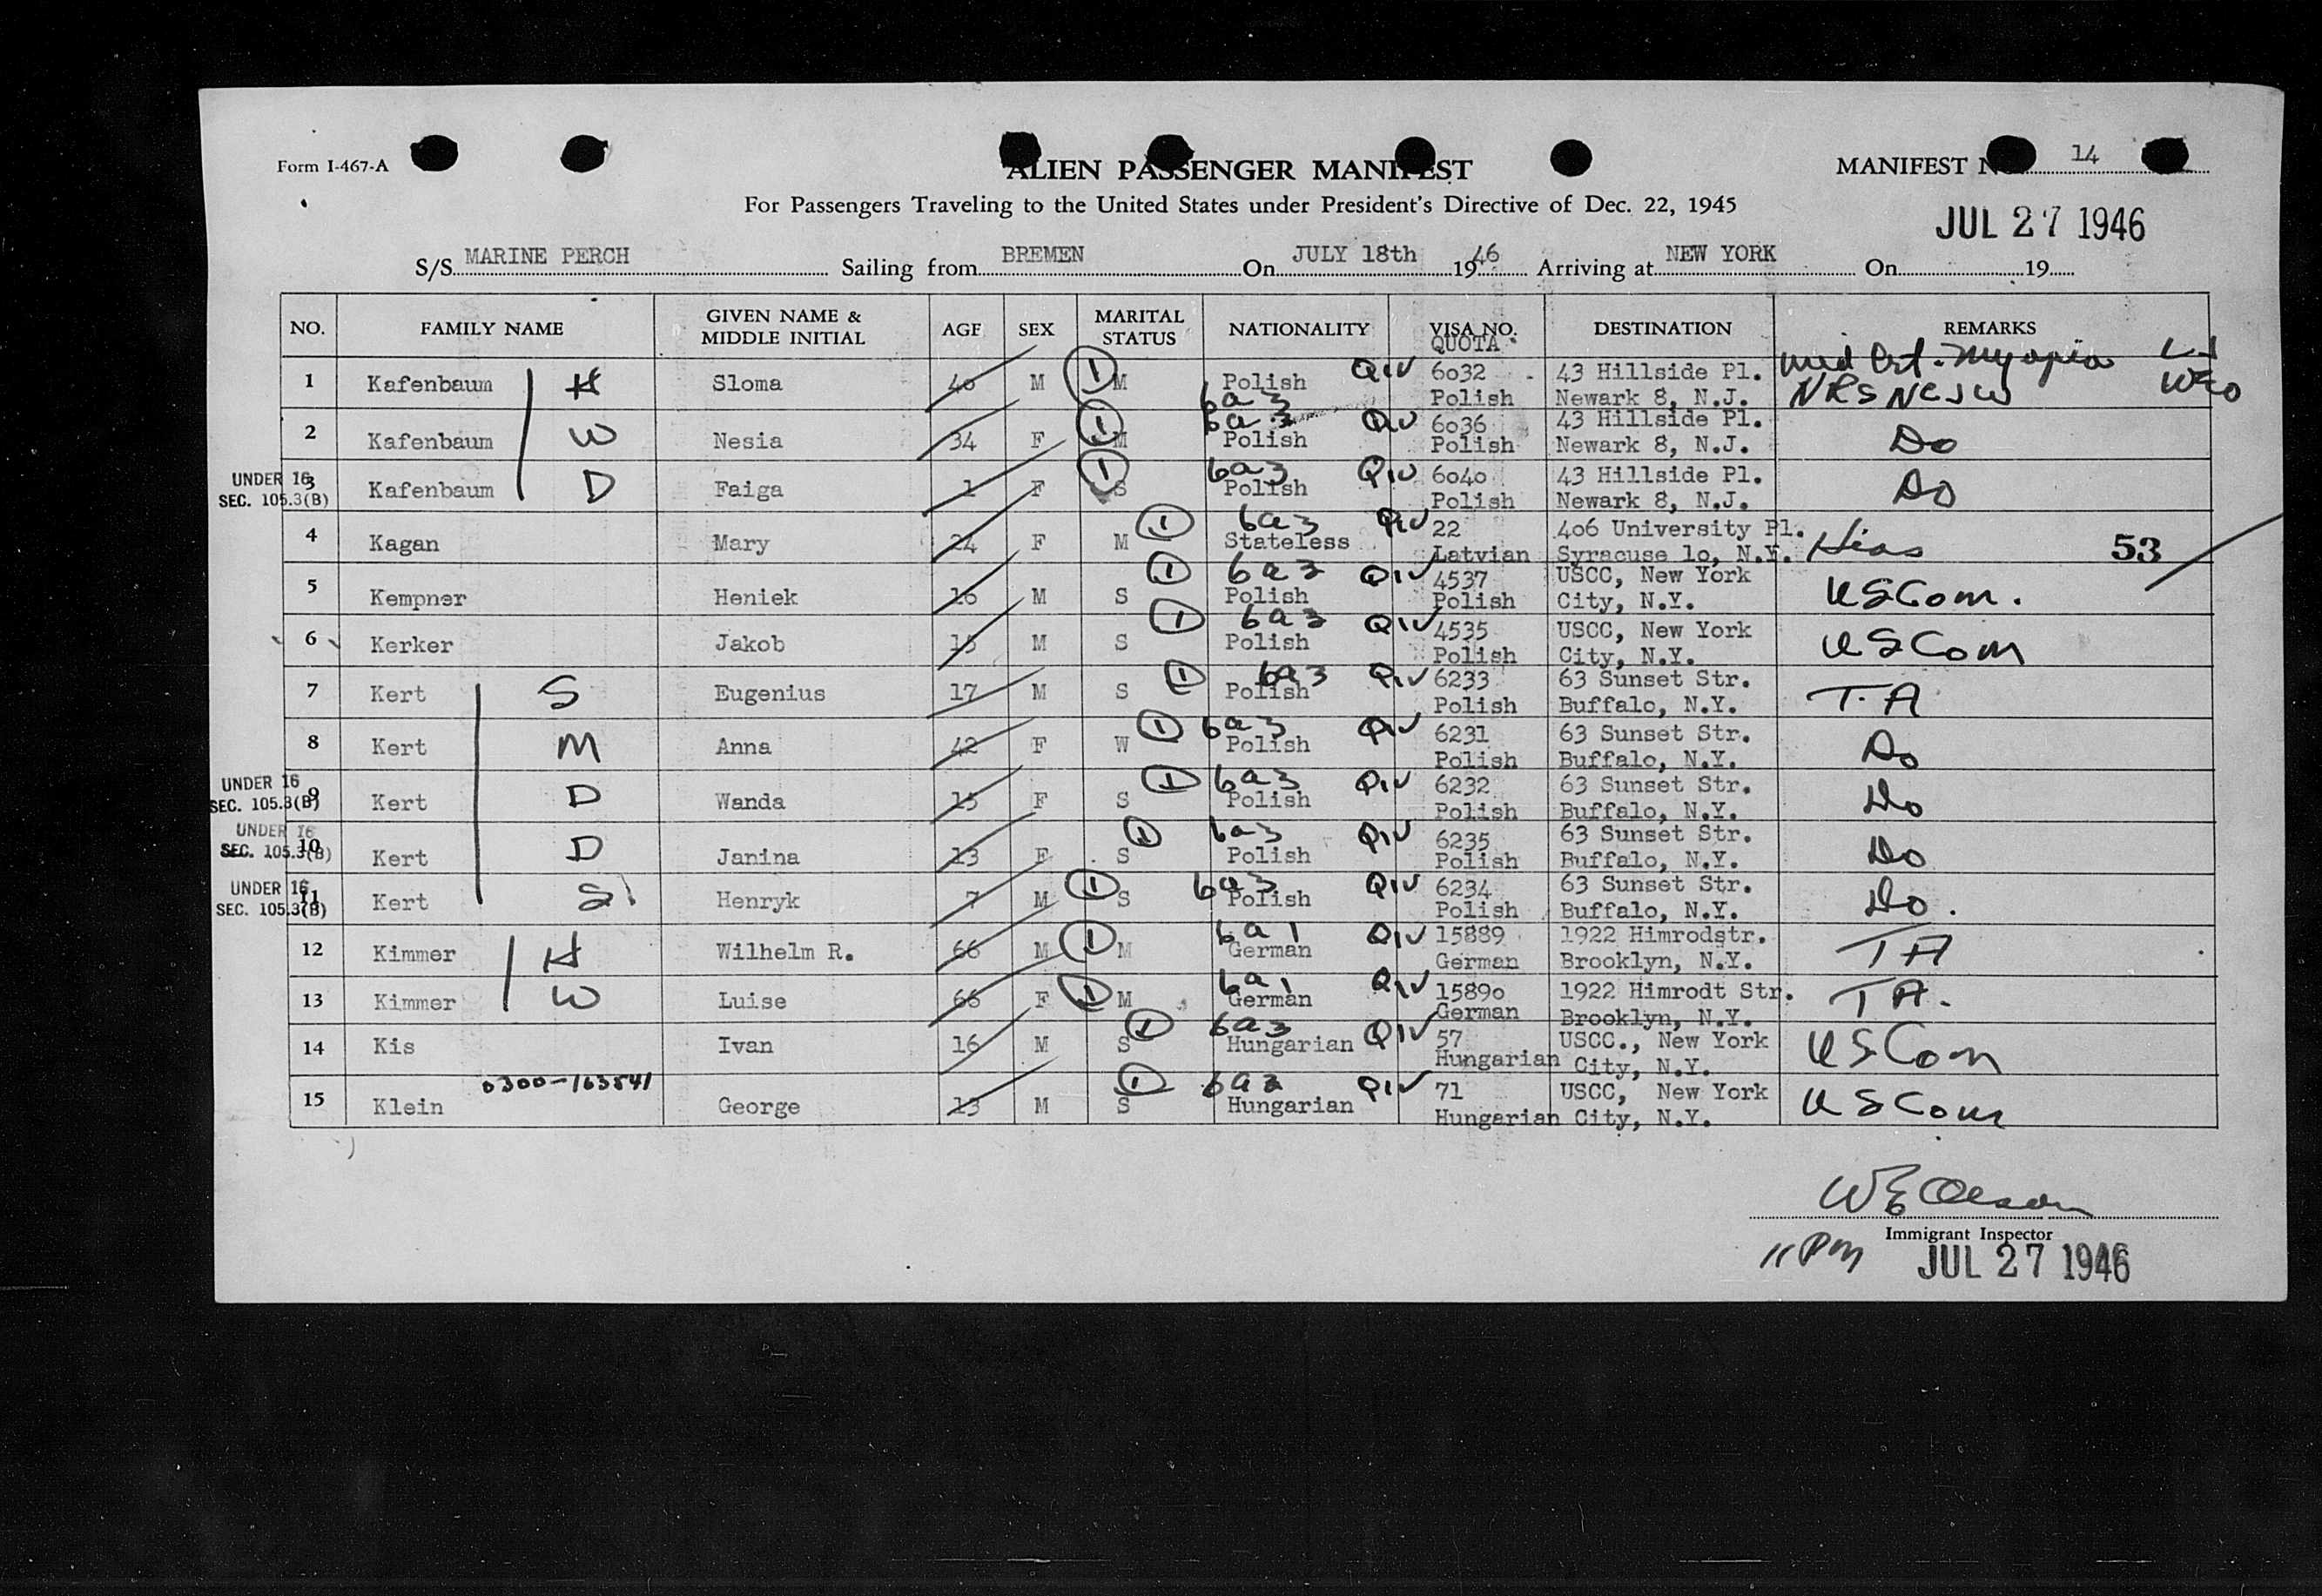 Form I-467-A
ALIEN PASSENGER MANIFEST
MANIFEST N 14
For Passengers Traveling to the United States under President's Directive of Dec. 22, 1945
JUL 27 1946
S/S MARINE PERCH Sailing from BREMEN On JULY 18th 1946 Arriving at NEW YORK On 19
NO. FAMILY NAME GIVEN NAME & MIDDLE INITIAL AGE SEX MARITAL STATUS NATIONALITY VISA NO. QUOTA DESTINATION REMARKS
1 Kafenbaum H Sloma 40 M 1 M Polish 6a3 QIV 6032 Polish 43 Hillside Pl. Newark 8, N.J. Med Cert. Myopia NRS NCJW WEO
2 Kafenbaum W Nesia 34 F 1 M 6a3 Polish QIV 6036 Polish 43 Hillside Pl. Newark 8, N.J. Do
UNDER 16 SEC. 105.3(B) 3 Kafenbaum D Faiga 1 F 1 S 6a3 Polish QIV 6040 Polish 43 Hillside Pl. Newark 8, N.J. Do
4 Kagan Mary 24 F M 1 6a3 Stateless QIV 22 Latvian 406 University Pl. Syracuse 10, N.Y. Hias 53
5 Kempner Heniek 16 M S 1 6a3 Polish QIV 4537 Polish USCC, New York City, N.Y. USCom.
6 Kerker Jakob 15 M S 1 6a3 Polish QIV 4535 Polish USCC, New York City, N.Y. USCom
7 Kert S Eugenius 17 M S 1 6a3 Polish QIV 6233 Polish 63 Sunset Str. Buffalo, N.Y. T.A
8 Kert M Anna 42 F W 1 6a3 Polish QIV 6231 Polish 63 Sunset Str. Buffalo, N.Y. Do
UNDER 16 SEC. 105.3(B) 9 Kert D Wanda 15 F S 1 6a3 Polish QIV 6232 Polish 63 Sunset Str. Buffalo, N.Y. Do
UNDER 16 SEC. 105.3(B) 10 Kert D Janina 13 F S 1 6a3 Polish QIV 6235 Polish 63 Sunset Str. Buffalo, N.Y. Do
UNDER 16 SEC. 105.3(B) 11 Kert S Henryk 7 M 1 S 6a3 Polish QIV 6234 Polish 63 Sunset Str. Buffalo, N.Y. Do.
12 Kimmer H Wilhelm R. 66 M 1 M 6a1 German QIV 15889 German 1922 Himrodstr. Brooklyn, N.Y. TA
13 Kimmer W Luise 66 F 1 M 6a1 German QIV 15890 German 1922 Himrodt Str. Brooklyn, N.Y. TA.
14 Kis Ivan 16 M S 1 6a3 Hungarian QIV 57 Hungarian USCC., New York City, N.Y. USCom
15 Klein 0300-163541 George 13 M S 1 6a3 Hungarian QIV 71 Hungarian USCC, New York City, N.Y. USCom
WE Oleson
Immigrant Inspector
11 PM JUL 27 1946